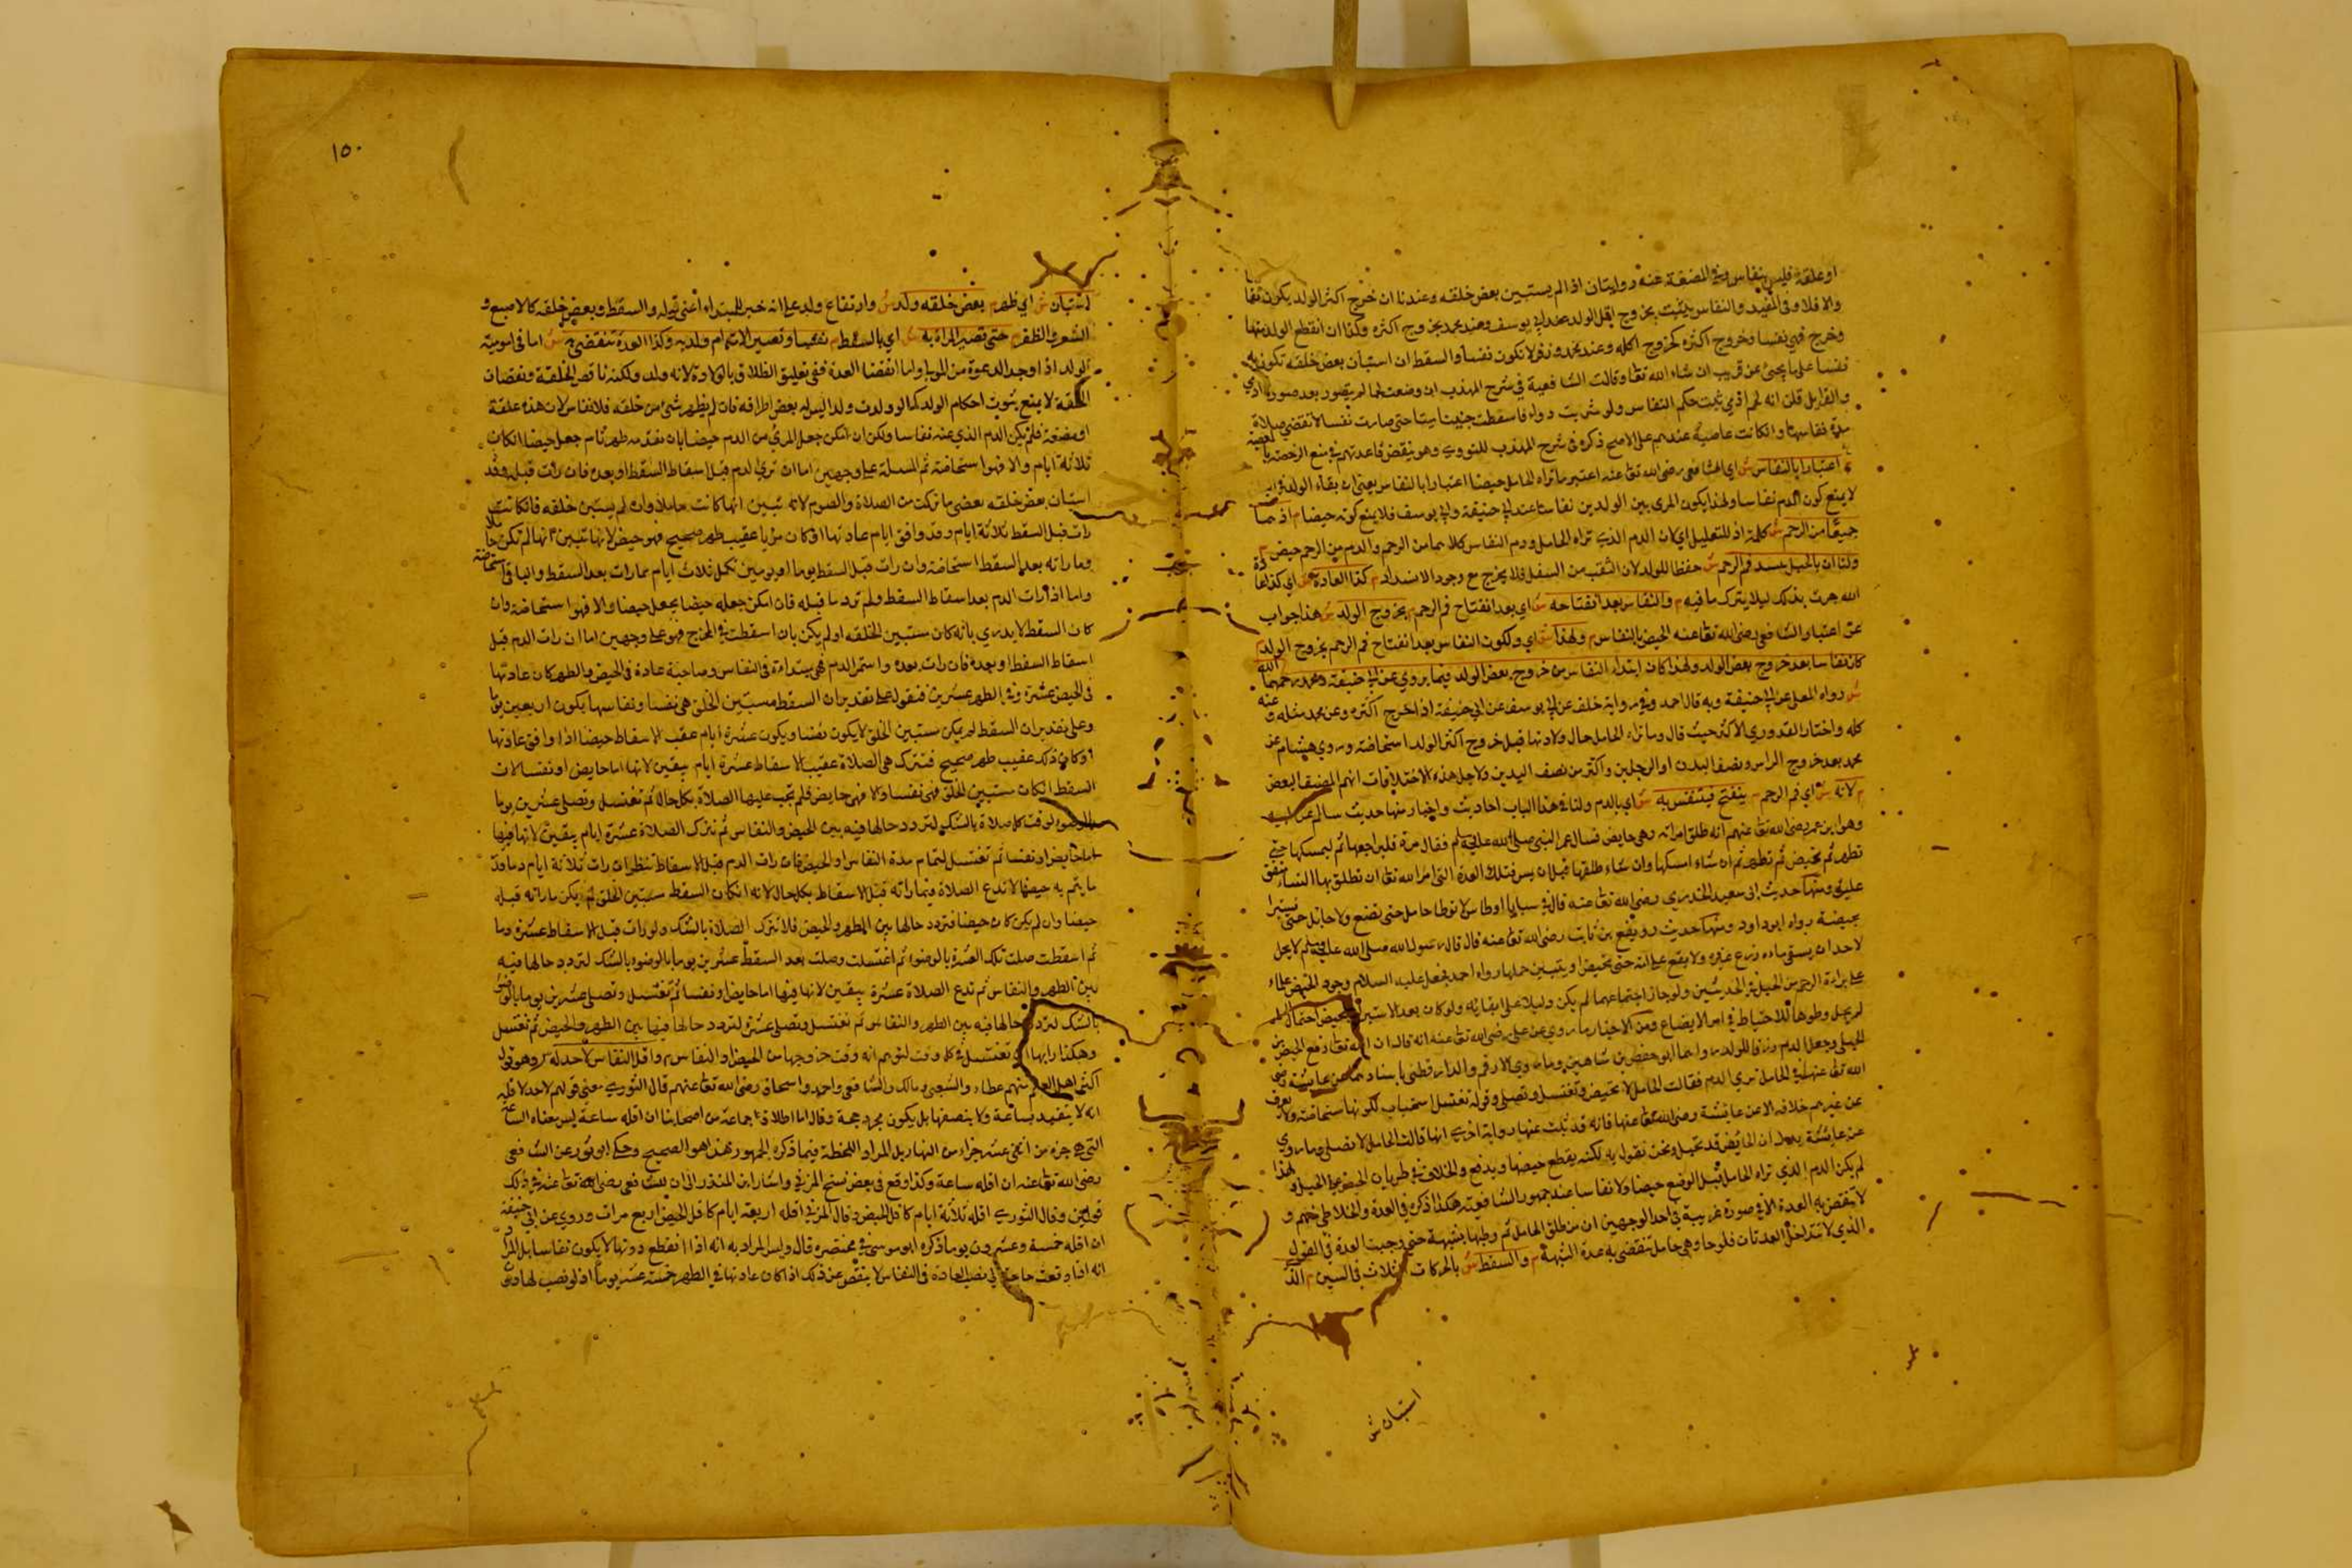 او علقة فليس بنفاس وفي المضغة عنه روايتان اذا لم يستبين بعض خلقه وعندنا ان خرج اكثر الولد يكون نفاسا
والا فلا وفي المفيد والنفاس يثبت بخروج اقل الولد عند ابي يوسف وعند محمد بخروج اكثره وكذا ان انقطع الولد منها
وخرج فهي نفسا وخروج اكثره كخروج كله وعند محمد وزفر لا تكون نفسا والسقط ان استبان بعض خلقه تكون به
نفسا على ما يجئ عن قريب ان شاء الله تعا وقالت الشافعية في شرح المهذب ان وضعت لحما لم يتصور بعد صورة ادمي
والقوابل قلن انه لحم ادمي ثبت حكم النفاس ولو شربت دواء فاسقطت جنينا ميتا حتى صارت نفسا لا تقضي صلاة
مدة نفاسها وان كانت عاصية عندهم على الاصح ذكره في شرح المهذب للنووي وهو ينقض قاعدتهم في منع الرخصة بالمعصية
م اعتبارا بالنفاس ش اي الشافعي رضى الله تعا عنه اعتبر ما تراه الحامل حيضا اعتبارا بالنفاس يعني ان بقاء الولد
لا يمنع كون الدم نفاسا ولهذا يكون المرى بين الولدين نفاسا عند ابي حنيفة وابي يوسف فلا يمنع كونه حيضا م اذ هما
جميعا من الرحم ش كلمة اذ للتعليل اي لان الدم الذي تراه الحامل ودم النفاس كلاهما من الرحم والدم من الرحم حيض م
ولنا ان بالحبل ينسد فم الرحم ش حفظا للولد لان الثقب من السفل فلا يخرج مع وجود الانسداد م كذا العادة ش اي كذا عادة
الله جرت بذلك ليلا يترك ما فيه م والنفاس بعد انفتاحه ش اي بعد انفتاح فم الرحم م بخروج الولد ش هذا جواب
عن اعتبار الشافعي رضى الله تعا عنه الحيض بالنفاس م ولهذا ش اي ولكون النفاس بعد انفتاح فم الرحم بخروج الولد م
كان نفاسا بعد خروج بعض الولد ولهذا كان ابتداء النفاس من خروج بعض الولد فيما يروي عن ابي حنيفة ومحمد رحمهما الله
ش رواه المعلى عن ابي حنيفة وبه قال احمد وفي رواية خلف عن ابي يوسف عن ابي حنيفة اذا خرج اكثره وعن محمد مثله وعنه
كله واختار القدوري الاكثر حيث قال وما تراه الحامل حال ولادتها قبل خروج اكثر الولد استحاضة وروي هشام عن
محمد بعد خروج الراس ونصف البدن او الرجلين واكثر من نصف اليدين ولاجل هذه الاختلافات ابهم المصنف البعض
م لانه ش اي فم الرحم م ينفتح فيتنفس به ش اي بالدم ولنا في هذا الباب احاديث واخبار منها حديث سالم عن ابيه
وهو ابن عمر رضى الله تعا عنهم انه طلق امراته وهي حايض فسال عمر النبي صلى الله عليه وسلم فقال مره فليراجعها ثم ليمسكها حتى
تطهر ثم تحيض ثم تطهر ثم ان شاء امسكها وان شاء طلقها قبل ان يمس فتلك العدة التي امر الله تعا ان تطلق بها النساء متفق
عليه ومنها حديث ابي سعيد الخدري رضى الله تعا عنه قال في سبايا اوطاس لا توطا حامل حتى تضع ولا حايل حتى تستبرا
بحيضة رواه ابو داود ومنها حديث رويفع بن ثابت رضى الله تعا عنه قال قال رسول الله صلى الله عليه وسلم لا يحل
لاحد ان يسقي ماءه زرع غيره ولا يقع على امة حتى تحيض او يتبين حملها رواه احمد فجعل عليه السلام وجود الحيض علما
على براءة الرحم من الحبل في الحديثين ولو جاز اجتماعهما لم يكن دليلا على انتفائه ولو كان بعد الاستبراء بحيض احتمال الحمل
لم يحل وطوها للاحتياط في امر الابضاع ومن الاخبار ما روي عن علي رضى الله تعا عنه انه قال ان الله تعا رفع الحيض عن
الحبلى وجعل الدم رزقا للولد رواهما ابو حفص بن شاهين وما روي الارقم والدارقطني باسنادهما عن عايشة رضى
الله تعا عنها في الحامل ترى الدم فقالت الحامل لا تحيض وتغتسل وتصلي وقوله تغتسل استحباب لكونها مستحاضة ولا يعرف
عن غيرهم خلافه الا عن عايشة رضى الله تعا عنها فانه قد ثبت عنها رواية اخرى انها قالت الحامل لا تصلي وما روي
عن عايشة يدل ان الحايض قد تحبل ونحن نقول به لكنه يقطع حيضها ويدفع والخلاف في طريان الحيض على الحبل ولهذا
لم يكن الدم الذي تراه الحامل قبل الوضع حيضا ولا نفاسا عند جمهور الشافعية هكذا ذكره في العدة والخلاطي منهم و
لا تنقضي به العدة الا في صورة غريبة في احد الوجهين ان من طلق الحامل ثم وطيها بشبهة حتى وجبت العدة في القول
الذي لا تتداخل العدتان فلو حاضت وهي حامل تنقضي به عدة الشبهة م والسقط ش بالحركات الثلاث في السين م الذي
استبان ش
١٥٠
استبان ش اي ظهر م بعض خلقه ولد ش وارتفاع ولد على انه خبر المبتداء اعني قوله والسقط وبعض خلقه كالاصبع و
الشعر والظفر م حتى تصير المراة به ش اي بالسقط م نفسا وتصير الامة ام ولد به وكذا العدة تنقضي به ش اما في امومية
الولد اذا وجد الدعوة من المولى واما انقضا العدة ففي تعليق الطلاق بالولادة لانه ولد ولكنه ناقص الخلقة ونقصان
الخلقة لا يمنع ثبوت احكام الولد كما لو ولدت ولدا ليس له بعض اطرافه فان لم يظهر شئ من خلقه فلا نفاس لان هذه علقة
او مضغة فلم يكن الدم الذي عنه نفاسا ولكن ان امكن جعل المرئ من الدم حيضا بان تقدمه طهر تام جعل حيضا ان كان
ثلاثة ايام والا فهو استحاضة ثم المسلة على وجهين اما ان ترى الدم قبل اسقاط السقط او بعده فان رات قبله وقد
استبان بعض خلقه بعضى ما تركت من الصلاة والصوم لانه تبين انها كانت حاملا وان لم يستبين خلقه فان كانت
رات قبل السقط ثلاثة ايام وقد وافق ايام عادتها او كان مرئيا عقيب طهر صحيح فهو حيض لانها تبين انها لم تكن حاملا
وما راته بعد السقط استحاضة وان رات قبل السقط يوما او يومين تكمل ثلاث ايام مما رات بعد السقط والباقي استحاضة
واما اذا رات الدم بعد اسقاط السقط ولم تر دما قبله فان امكن جعله حيضا يجعل حيضا والا فهو استحاضة وان
كان السقط لا يدري بانه كان مستبين الخلقة او لم يكن بان اسقطت في المخرج فهو على وجهين اما ان رات الدم قبل
اسقاط السقط او بعده فان رات بعده واستمر الدم فهي مبتداة في النفاس وصاحبة عادة في الحيض والطهر كان عادتها
في الحيض عشرة وفي الطهر عشرين فنقول على تقدير ان السقط مستبين الخلق هي نفسا ونفاسها يكون اربعين يوما
وعلى تقدير ان السقط لم يكن مستبين الخلق لا يكون نفسا ويكون عشرة ايام عقب الاسقاط حيضا اذا وافق عادتها
او كان ذلك عقيب طهر صحيح فتترك هي الصلاة عقيب الاسقاط عشرة ايام بيقين لانها اما حايض او نفسا لان
السقط ان كان مستبين الخلق فهي نفسا والا فهي حايض فلم تجب عليها الصلاة بكل حال ثم تغتسل وتصلي عشرين يوما
بالوضوء لوقت كل صلاة بالشك لتردد حالها فيه بين الحيض والنفاس ثم تترك الصلاة عشرة ايام بيقين لانها فيها
اما حايض او نفسا ثم تغتسل لتمام مدة النفاس او الحيض فان رات الدم قبل الاسقاط ينظر ان رات ثلاثة ايام دما قد
ما يتم به حيضها لا تدع الصلاة فيما راته قبل الاسقاط بكل حال لانه ان كان السقط مستبين الخلق لم يكن ما راته قبله
حيضا وان لم يكن كان حيضا فتردد حالها بين الطهر والحيض فلا تترك الصلاة بالشك ولو رات قبل الاسقاط عشرة وما
ثم اسقطت صلت تلك العشرة بالوضوء ثم اغتسلت وصلت بعد السقط عشرين يوما بالوضوء بالشك لتردد حالها فيه
بين الطهر والنفاس ثم تدع الصلاة عشرة بيقين لانها فيها اما حايض او نفسا ثم تغتسل وتصلي عشرين يوما بالوضوء
بالشك لتردد حالها فيه بين الطهر والنفاس ثم تغتسل وتصلي عشرة لتردد حالها فيها بين الطهر والحيض ثم تغتسل
وهكذا دابها ان تغتسل في كل وقت لتوهم انه وقت خروجها من الحيض او النفاس م واقل النفاس لا حد له ش وهو قول
اكثر اهل العلم منهم عطاء والشعبي ومالك والشافعي واحمد واسحاق رضى الله تعا عنهم قال النووي معنى قولهم لا حد لاقله
انه لا يتقيد بساعة ولا بنصفها بل يكون مجرد مجة وقال اما اطلاق جماعة من اصحابنا ان اقله ساعة ليس معناه الساعة
التي هي جزء من اثنى عشر جزاء من النهار بل المراد اللحظة فيما ذكره الجمهور هذا هو الصحيح وحكى ابو ثور عن الشافعي
رضى الله تعا عنه ان اقله ساعة وكذا وقع في بعض نسخ المزني واشار ابن المنذر الى ان للشافعي رضى الله تعا عنه في ذلك
قولين وقال الثوري اقله ثلاثة ايام كاقل الحيض وقال المزني اقله اربعة ايام كاقل الحيض اربع مرات وروي عن ابي حنيفة
ان اقله خمسة وعشرون يوما ذكره ابو موسى في مختصره قال وليس المراد به انه اذا انقطع دونها لا يكون نفاسا بل المراد
انه اذا وقعت حاجة الى نصب العادة في النفاس لا ينقص عن ذلك اذا كان عادتها في الطهر خمسة عشر يوما اذ لو نصب لها دون